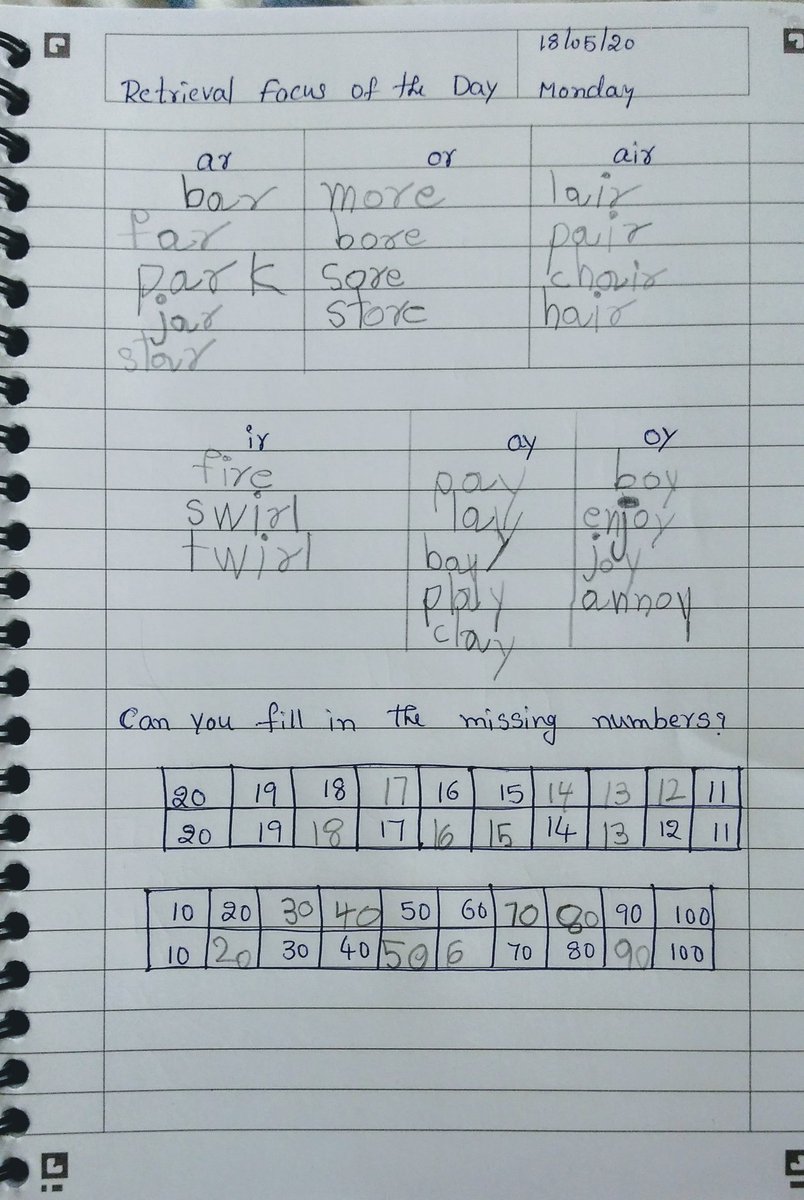 18/05/20
Retrieval Focus of the Day Monday
ar or air
bar more lair
far bore pair
park sore chair
jar store hair
star
ir ay oy
fire pay boy
swirl lay enjoy
twirl bay joy
play annoy
clay
Can you fill in the missing numbers?
20 19 18 17 16 15 14 13 12 11
20 19 18 17 16 15 14 13 12 11
10 20 30 40 50 60 70 80 90 100
10 20 30 40 50 6 70 80 90 100